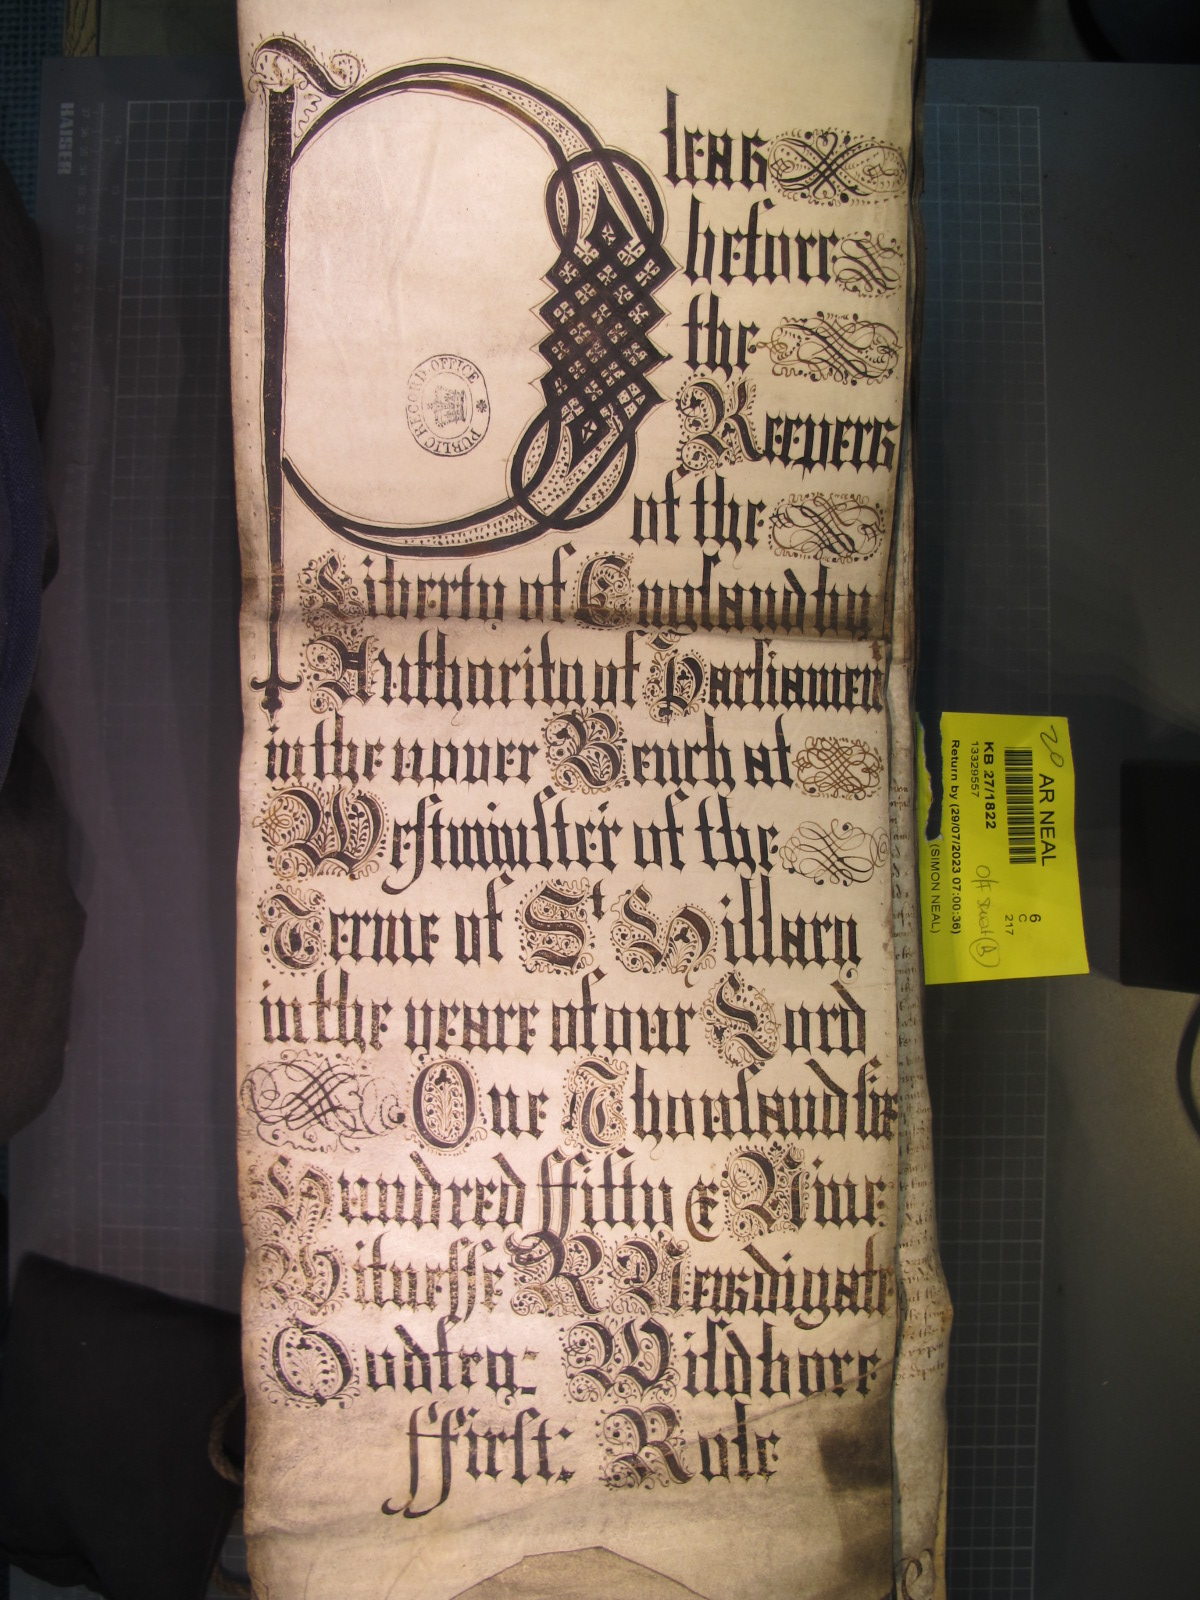 Pleas
before
the
Keepers
of the
Liberty of England by
Authority of Parliamen
in the upper Bench at
Westminster of the
Terme of St Hillary
in the yeare of our Lord
One Thousand six
Hundred ffifty & Nine
Witnesse R Newdigate
Wildbore
ffirst: Role
PUBLIC RECORD OFFICE
HAISER
20
AR NEAL
KB 27/1822
13329557
Return by (29/07/2023 07:00:36)
(SIMON NEAL)
6
C
217